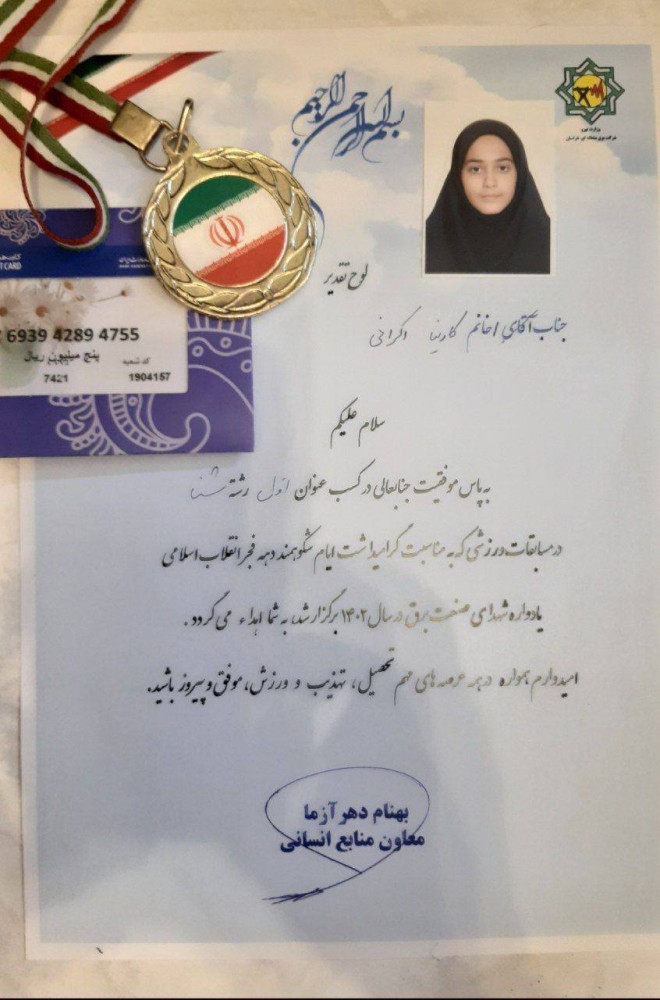 بسم الله الرحمن الرحیم
وزارت نیرو
شرکت برق منطقه ای خراسان
لوح تقدیر
جناب آقای / خانم کارینا اکرانی
T CARD
6939 4289 4755
پنج میلیون ریال
کد شعبه
7421 1904157
سلام علیکم
به پاس موفقیت جنابعالی در کسب عنوان اول رشته شنا
در مسابقات ورزشی که به مناسبت گرامیداشت ایام شکوهمند دهه فجر انقلاب اسلامی
یادواره شهدای صنعت برق در سال ۱۴۰۲ برگزار شد، به شما اهداء می گردد.
امیدوارم همواره در همه عرصه های مهم تحصیل، تهذیب و ورزش، موفق و پیروز باشید.
بهنام دهرآزما
معاون منابع انسانی